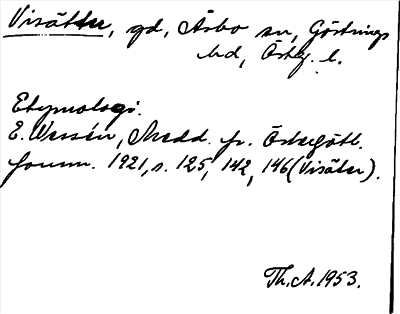 Visätter, gd, Åsbo sn, Göstrings
hd, Östg. l.
Etymologi.
E. Wessén, Medd. fr. Östergötl.
fornm. 1921, s. 125, 142, 146 (Visäter).
Th. A. 1953.